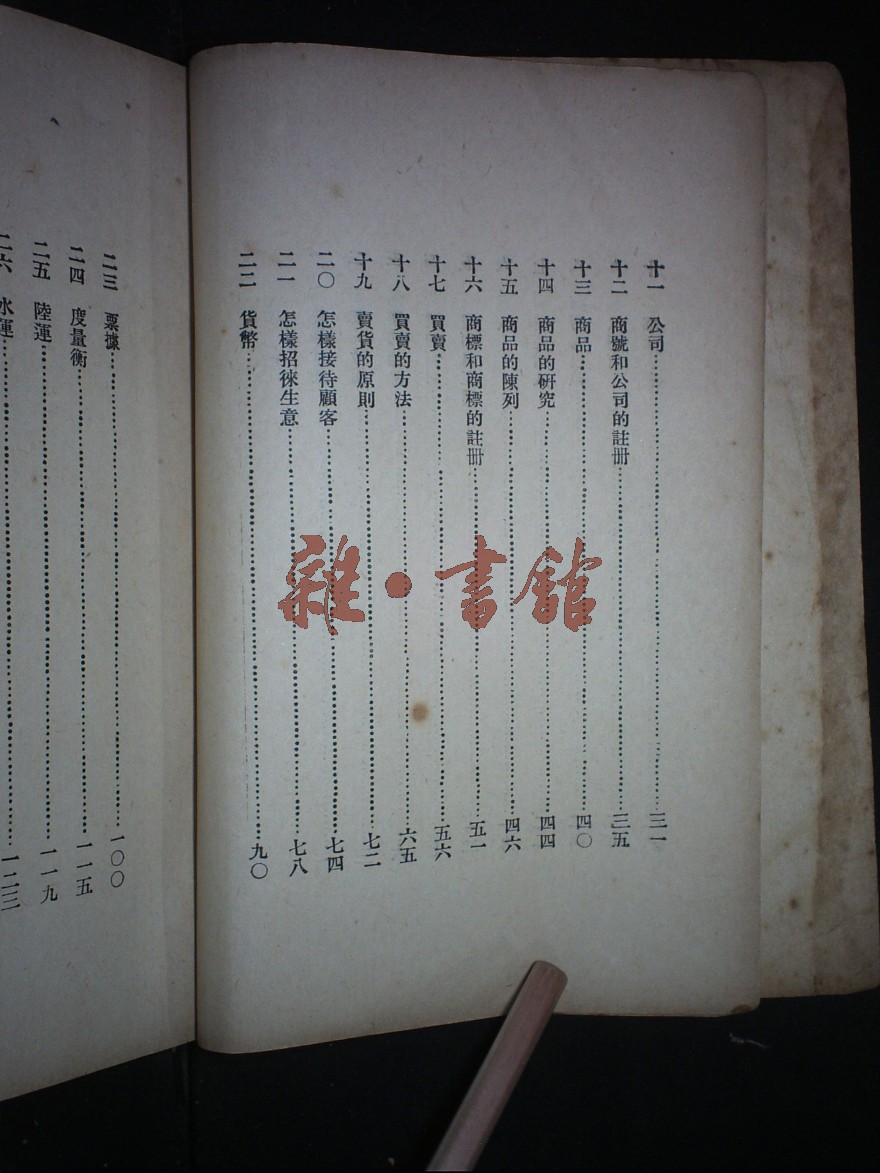 十一 公司……三一
十二 商號和公司的註冊……三五
十三 商品……四〇
十四 商品的研究……四四
十五 商品的陳列……四六
十六 商標和商標的註冊……五一
十七 買賣……五六
十八 買賣的方法……六五
十九 賣貨的原則……七二
二〇 怎樣接待顧客……七四
二一 怎樣招徠生意……七八
二二 貨幣……九〇
二三 票據……一〇〇
二四 度量衡……一一五
二五 陸運……一一九
二六 水運……一二三
雜·書館